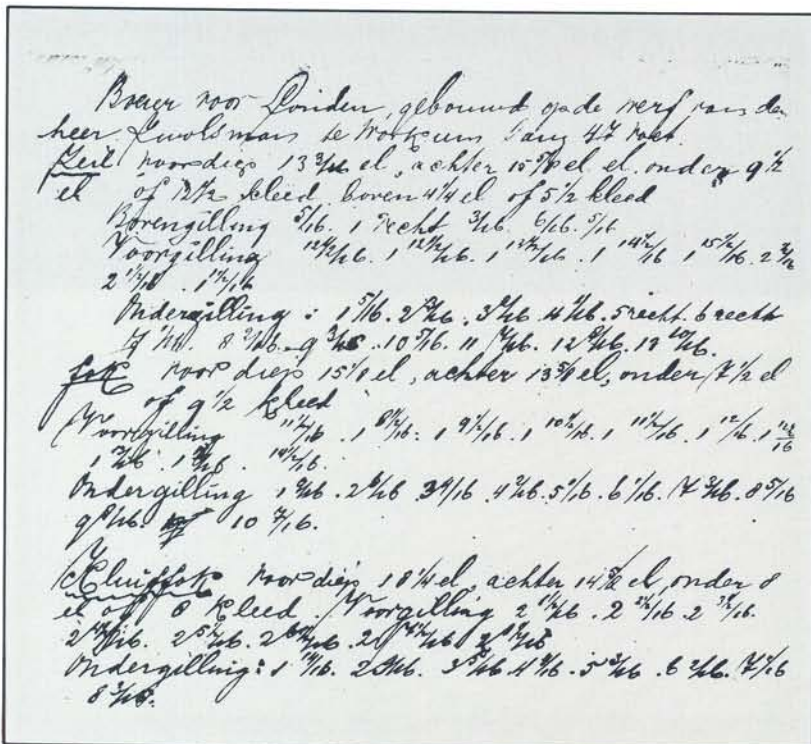 Boeier voor Londen, gebouwd op de werf van de
heer Zwolsman te Workum lang 47 voet.
Zeil voor diep 13 3/16 el, achter 15 5/8 el. el. onder 9 1/2
el of 12 1/2 kleed boven 4 1/4 el of 5 1/2 kleed
Bovengilling 5/16. 1 recht 3/16. 6/16. 5/16
Voorgilling 12 1/2/16. 1 12 1/2/16. 1 13 1/2/16. 1 14 1/2/16 1 15 1/2/16. 2
2 1 1/2/16. 1 1/2/16
Ondergilling: 1 5/16. 2 3/16. 3 2/16. 4 1/16. 5 recht. 6 recht
7 1/16. 8 2/16. 9 3/16. 10 5/16. 11 7/16. 12 8/16. 12 10/16.
fok voor diep 15 1/8 el, achter 13 5/8 el, onder 7 1/2 el
of 9 1/2 kleed
Voorgilling 11 1/2/16. 1 8 1/2/16. 1 9 1/2/16. 1 10 1/2/16. 1 11 1/2/16. 1 12/16. 1
1 1 14 1/2/16.
Ondergilling 1 2 6/16 3 4/16 4 2/16. 5 1/16. 6 1/16. 7 3/16. 8 5/16
9 8/16 10 7/16.
Kluiffok voor diep 18 1/4 el, achter 14 5/8 el, onder 8
el of 8 kleed. Voorgilling 2 1 1/2/16. 2 2 1/2/16. 2 3 1/2/16.
2 4 1/2/16. 2 5 1/2/16. 2 6 1/2/16. 2 7 1/2/16 2 8 1/2/16
Ondergilling: 1 11/16. 2 9/16. 3 5/16. 4 4/16. 5 3/16. 6 2/16. 7 1/16
8 3/16.